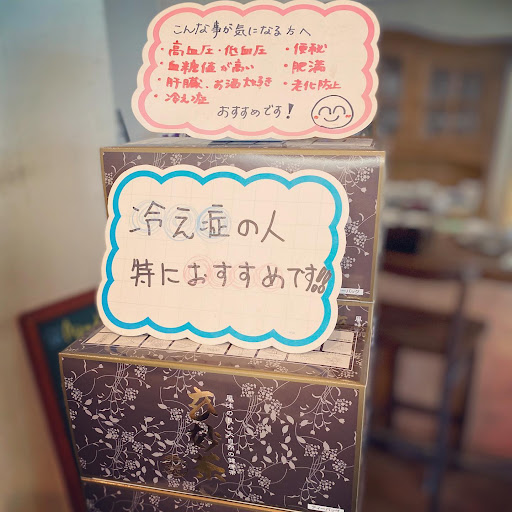 こんな事が気になる方へ
・高血圧・低血圧
・血糖値が高い
・肝臓、お酒好き
・冷え症
・便秘
・肥満
・老化防止
おすすめです!
冷え症の人
特におすすめです!!